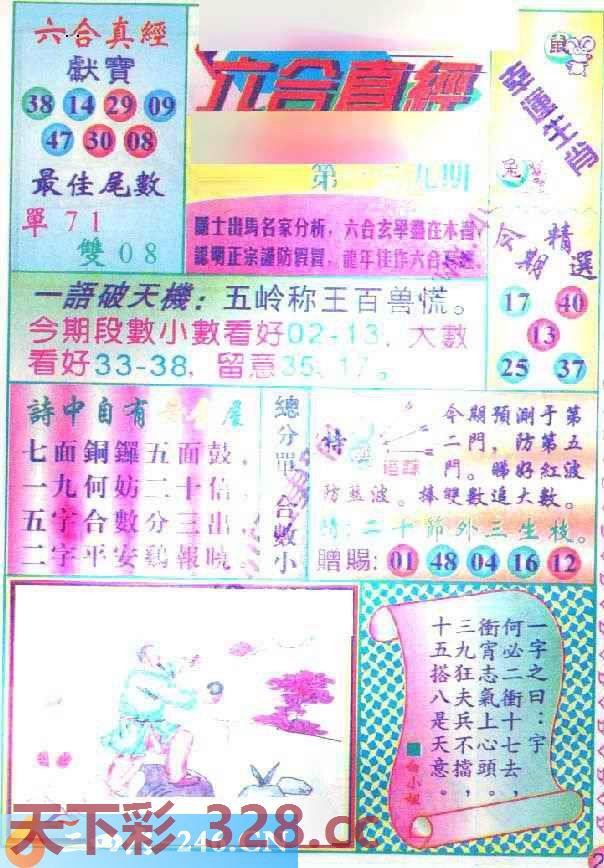 六合真經
獻寶
38 14 29 09
47 30 08
最佳尾數
單71
雙08
六合真經
第 九期
隱士出馬名家分析，六合玄學盡在本書
認明正宗謹防假冒，龍年佳作六合真經
鼠
幸運生肖
兔
今期精選
17 40
13
25 37
一語破天機：五岭称王百兽慌。
今期段數小數看好02-13，大數
看好33-38，留意35、17。
詩中自有
七面銅鑼五面鼓，
一九何妨二十倍，
五字合數分三出，
二字平安鷄報曉。
總分單
合數小
特
追踪
今期預測于第
二門，防第五
門。睇好紅波
防藍波。捧雙數追大數。
詩：二十節外三生枝。
贈賜：01 48 04 16 12
一字之曰：宇
何必二衝十七去，
衝宵志氣上心頭。
三九狂夫兵不擋，
十五搭八是天意。
白小姐
天下彩 328.cc
246.CN